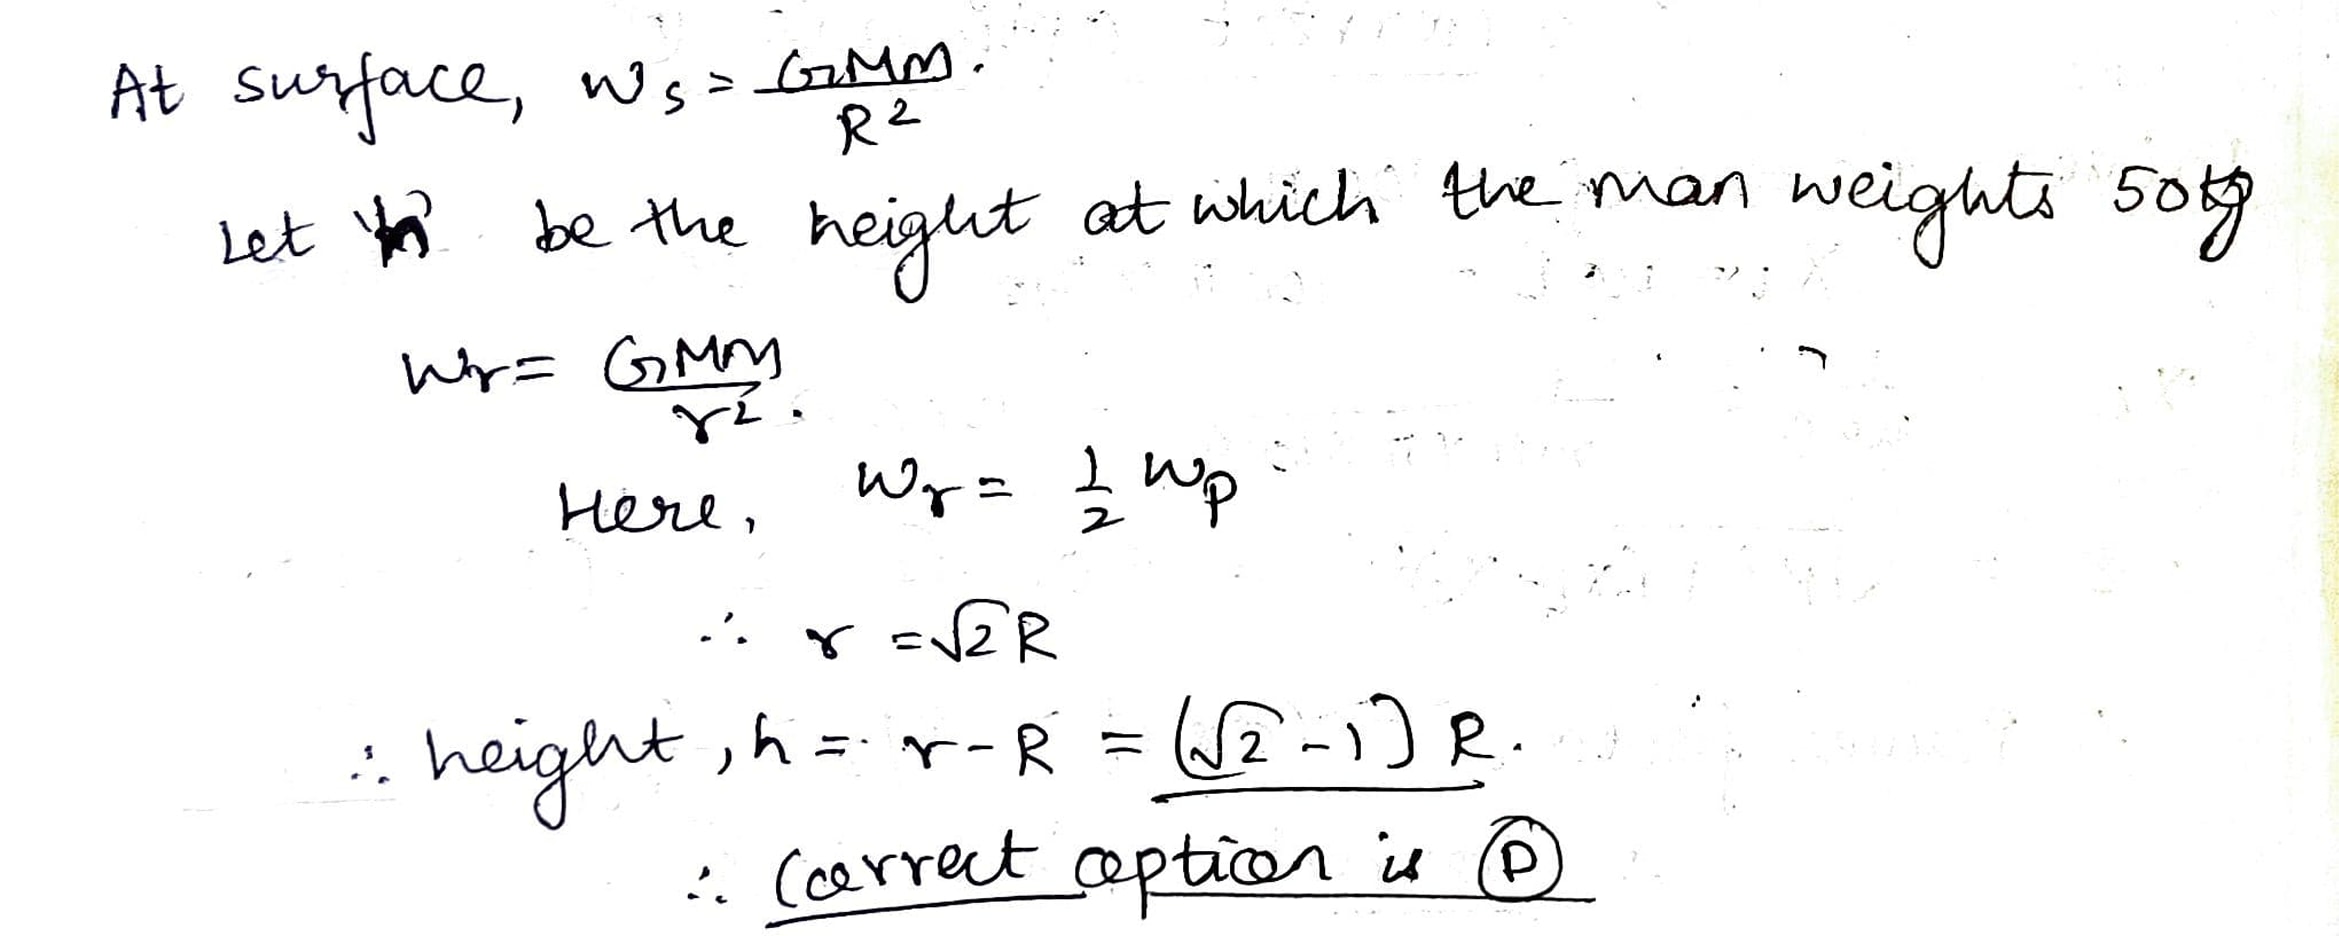 At surface, Ws = GMm/R².
Let 'h' be the height at which the man weights 50kg
Wr = GMm/r².
Here, Wr = 1/2 Wp
∴ r = √2 R
∴ height, h = r - R = (√2 - 1) R.
∴ Correct option is D